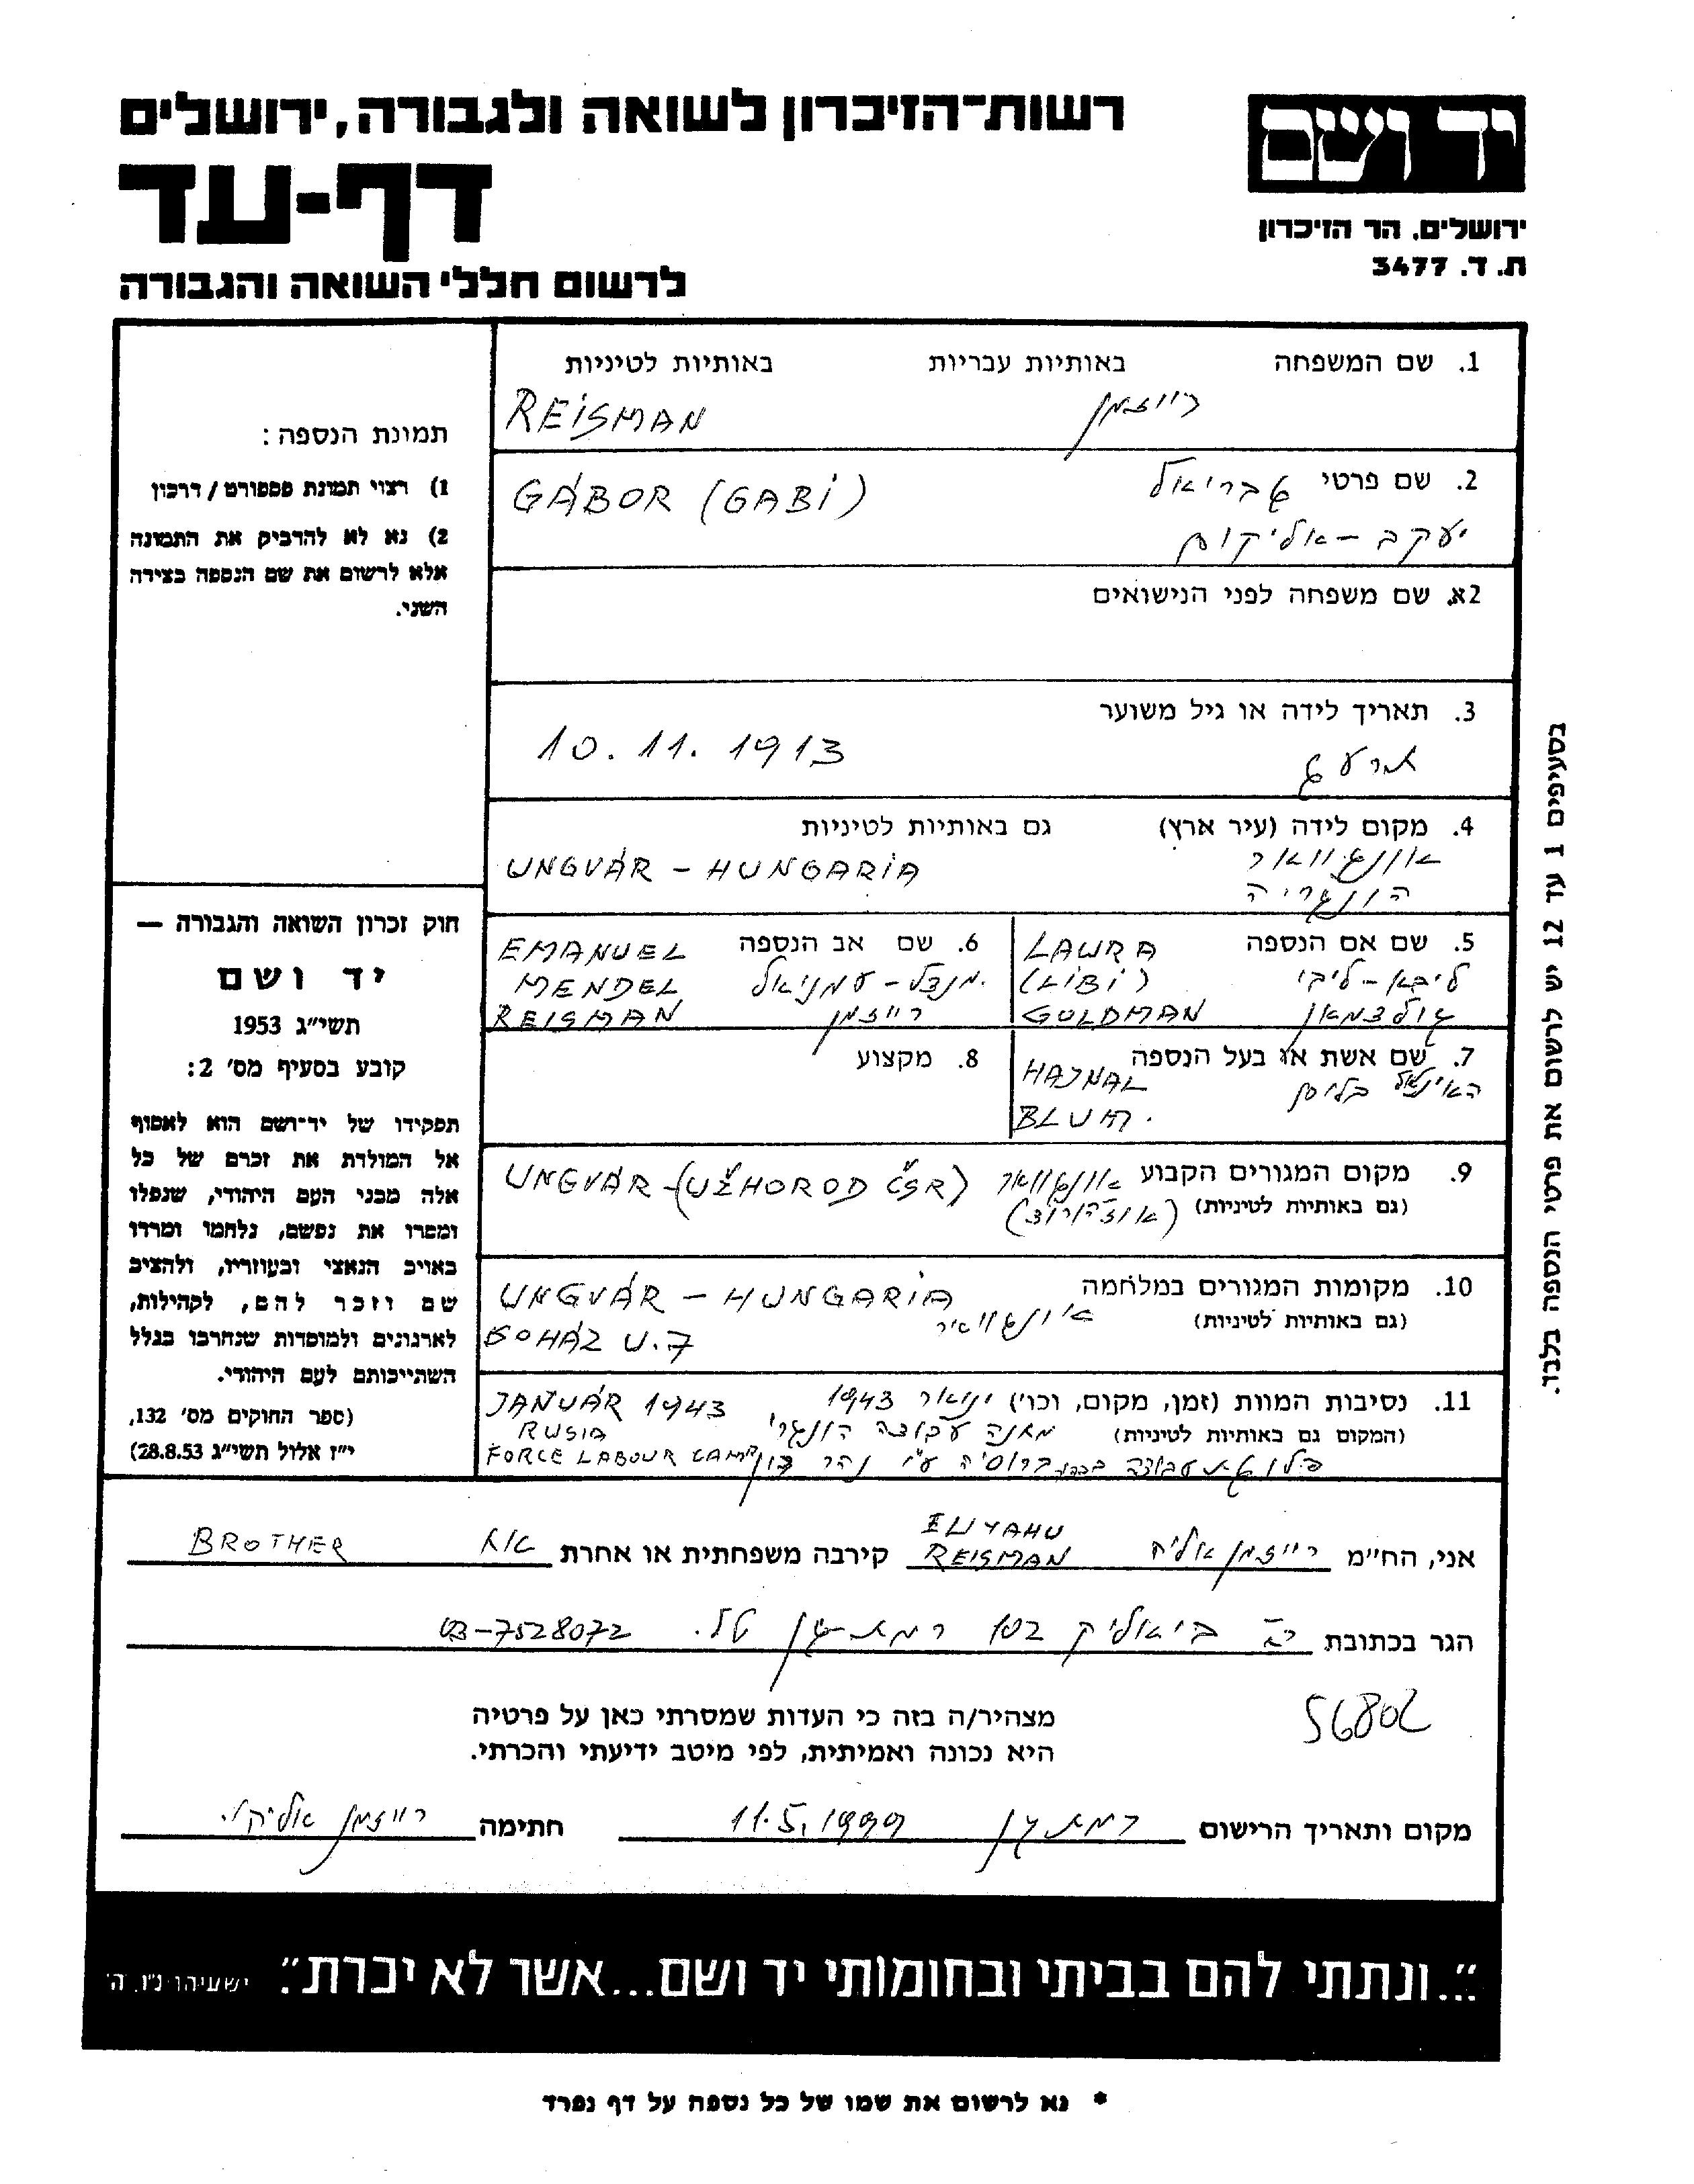 רשות־הזיכרון לשואה ולגבורה, ירושלים
דף-עד
לרשום חללי השואה והגבורה
יד ושם
ירושלים, הר הזיכרון
ת. ד. 3477
תמונת הנספה:
1) רצוי תמונת פספורט / דרכון
2) נא לא להדביק את התמונה
אלא לרשום את שם הנספה בצידה
השני.
חוק זכרון השואה והגבורה —
יד ושם
תשי״ג 1953
קובע בסעיף מס׳ 2:
תפקידו של יד־ושם הוא לאסוף
אל המולדת את זכרם של כל
אלה מבני העם היהודי, שנפלו
ומסרו את נפשם, נלחמו ומרדו
באויב הנאצי ובעוזריו, ולהציב
שם וזכר להם, לקהילות,
לארגונים ולמוסדות שנחרבו בגלל
השתייכותם לעם היהודי.
(ספר החוקים מס׳ 132,
י״ז אלול תשי״ג 28.8.53)
1. שם המשפחה באותיות עבריות באותיות לטיניות
רייזמן REISMAN
2. שם פרטי גבריאל GÁBOR (GABI)
יעקב - אליקום
2א. שם משפחה לפני הנישואים
3. תאריך לידה או גיל משוער
תרע ג 10.11.1913
4. מקום לידה (עיר ארץ) גם באותיות לטיניות
אונגוואר UNGVÁR - HUNGARIA
הונגריה
5. שם אם הנספה LAURA
ליבא - ליבי (LIBI)
גולדמאן GOLDMAN
6. שם אב הנספה EMANUEL
מנדל - עמניאל MENDEL
רייזמן REISMAN
7. שם אשת או בעל הנספה
האינאל בלום HAJNAL
BLUM.
8. מקצוע
9. מקום המגורים הקבוע אונגוואר UNGVÁR - (UŽHOROD ČSR)
(גם באותיות לטיניות) (אוזהורוד)
10. מקומות המגורים במלחמה UNGVÁR - HUNGARIA
(גם באותיות לטיניות) אונגוואר
KOHÁZ U. 7
11. נסיבות המוות (זמן, מקום, וכו׳) ינואר 1943 JANUÁR 1943
(המקום גם באותיות לטיניות) מחנה עבודה הונגרי RUSIA
פלוגת עבודה ברוסיה ע״י נהר דון FORCE LABOUR CAMP
אני, הח״מ רייזמן אליה ELIYAHU REISMAN קירבה משפחתית או אחרת אח BROTHER
הגר בכתובת רח ביאליק 102 רמת-גן טל. 03-7528072
56802
מצהיר/ה בזה כי העדות שמסרתי כאן על פרטיה
היא נכונה ואמיתית, לפי מיטב ידיעתי והכרתי.
מקום ותאריך הרישום רמת גן 11.5.1999 חתימה רייזמן
"...ונתתי להם בביתי ובחומותי יד ושם...אשר לא יכרת". ישעיהו נ״ו, ה׳
* נא לרשום את שמו של כל נספה על דף נפרד
בסעיפים 1 עד 12 יש לרשום את פרטי הנספה בלבד.